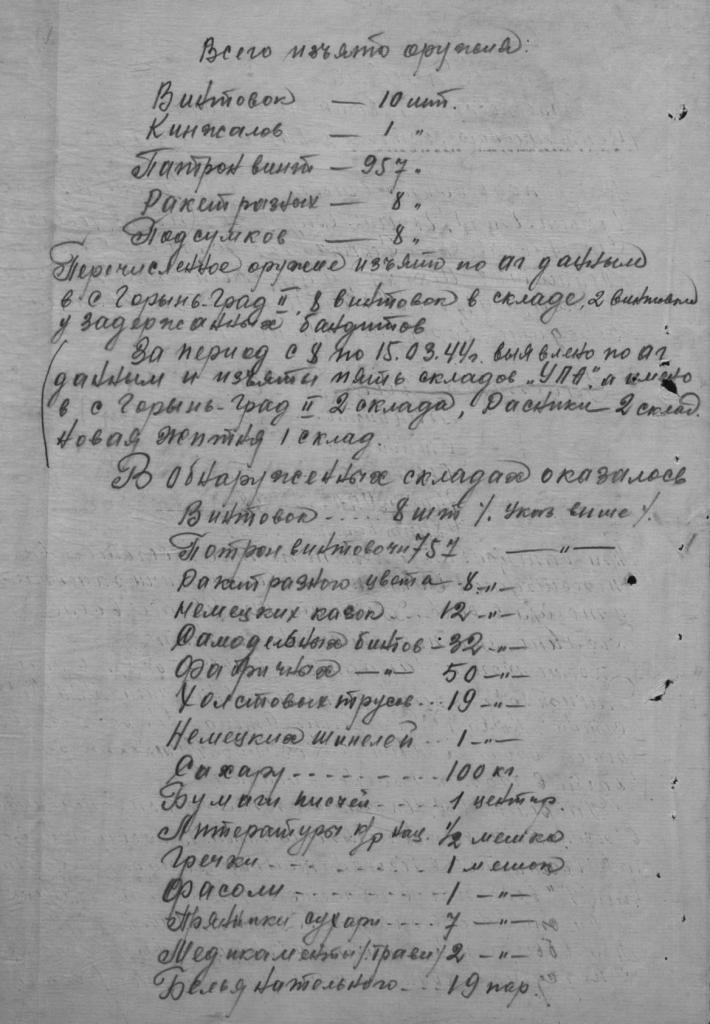 Всего изъято оружия:
Винтовок — 10 шт.
Кинжалов — 1 "
Патрон винт — 957 "
Ракет разных — 8 "
Подсумков — 8 "
Перечисленное оружие изъято по аг данным
в с Горынь-Град II, 8 винтовок в складе, 2 винтовки
у задержанных бандитов
За период с 8 по 15.03.44г. выявлено по аг
данным и изъяты пять складов „УПА", а имено
в с Горынь-Град II 2 склада, Расники 2 склад.
новая життя 1 склад.
В обнаруженных складах оказалось
Винтовок .... 8 шт /. указ. выше /.
Патрон винтовочн 757 —"—
Ракет разного цвета - 8 -"-
Немецких касок .. 12 -"-
Самодельных бинтов - 32 -"-
Фабричных —"— 50 -"-
Холстовых трусов ... 19 -"-
Немецких шинелей .. 1 -"-
Сахару - - - - - - - 100 кг.
Бумаги писчей - - - 1 центнр.
Литературы к/р нац. 1/2 мешка
Гречки - - - - - - 1 мешок
Фасоли - - - - - - 1 -"-
Пряники сухари .... 7 -"-
Медикаменты /трави/ 2 -"-
Белья нательного ... 19 пар.